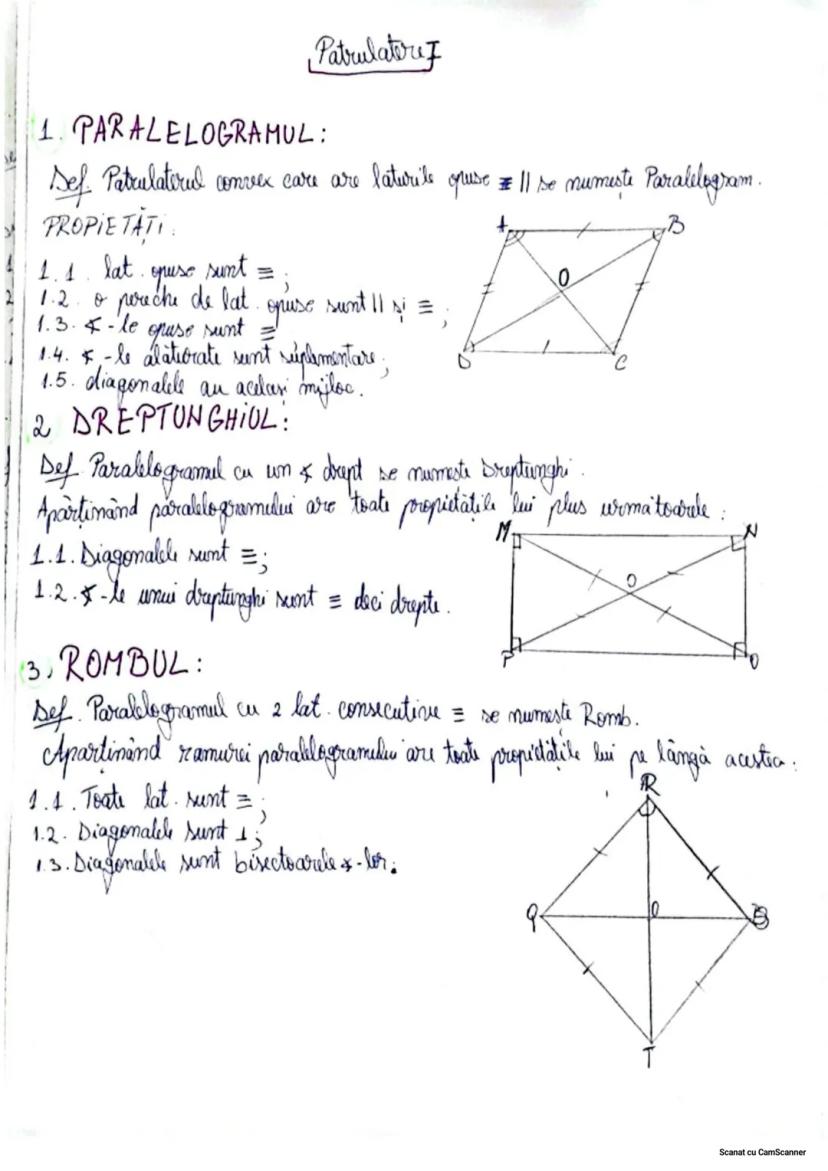 Patrulatere I
1. PARALELOGRAMUL:
Def. Patrulaterul convex care are laturile opuse || se numește Paralelogram.
PROPIETĂȚI:
1.1. lat. opuse sunt ≡;
1.2. o pereche de lat. opuse sunt || și ≡;
1.3. ∢-le opuse sunt ≡
1.4. ∢-le alăturate sunt suplimentare;
1.5. diagonalele au același mijloc.
A B
O
D C
2. DREPTUNGHIUL:
Def. Paralelogramul cu un ∢ drept se numește Dreptunghi.
Aparținând paralelogramului are toate propietățile lui plus următoarele:
1.1. Diagonalele sunt ≡;
1.2. ∢-le unui dreptunghi sunt ≡ deci drepte.
M N
O
P O
3. ROMBUL:
Def. Paralelogramul cu 2 lat. consecutive ≡ se numește Romb.
Aparținând ramurei paralelogramului are toate propietățile lui pe lângă acestea:
1.1. Toate lat. sunt ≡;
1.2. Diagonalele sunt ⊥;
1.3. Diagonalele sunt bisectoarele ∢-lor.
R
Q O
T
Scanat cu CamScanner